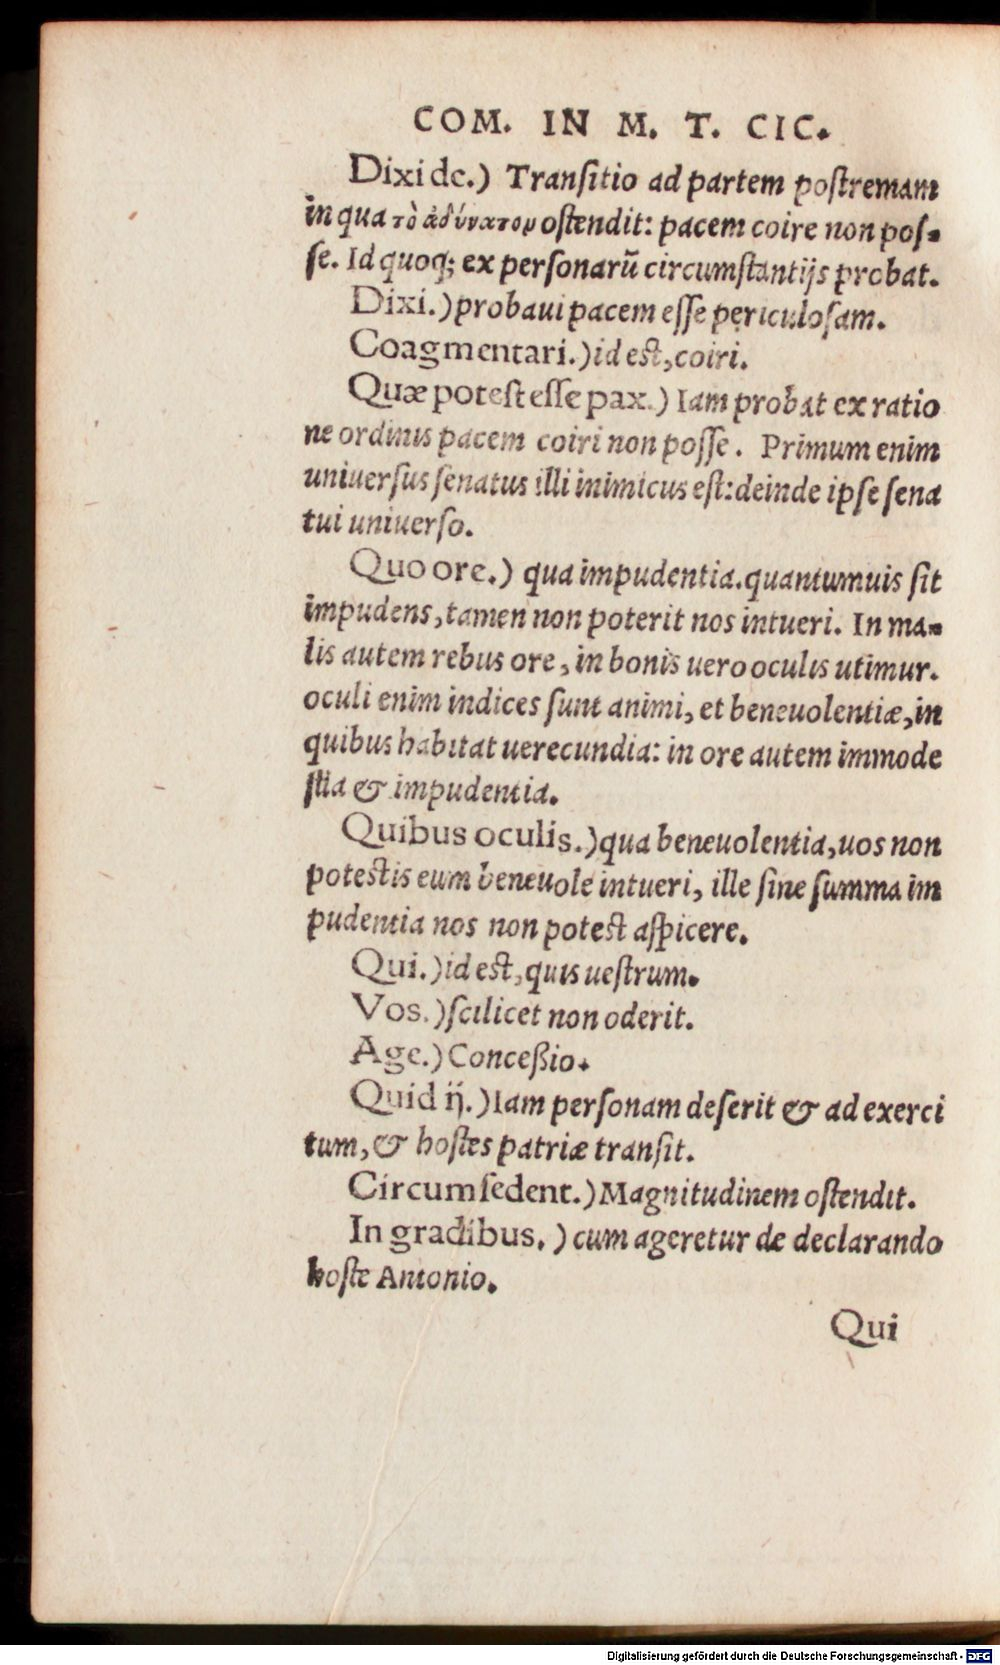 COM. IN M. T. CIC.
Dixi de.) Tranſitio ad partem poſtremam
in qua τὸ ἀδύνατον oſtendit: pacem coire non poſ-
ſe. Id quoq; ex perſonarũ circumſtantijs probat.
Dixi.) probaui pacem eſſe periculoſam.
Coagmentari.) id est, coiri.
Quæ poteſt eſſe pax.) Iam probat ex ratio
ne ordinis pacem coiri non poſſe. Primum enim
uniuerſus ſenatus illi inimicus eſt: deinde ipſe ſena
tui uniuerſo.
Quo ore.) qua impudentia. quantumuis ſit
impudens, tamen non poterit nos intueri. In ma-
lis autem rebus ore, in bonis uero oculis utimur.
oculi enim indices ſunt animi, et beneuolentiæ, in
quibus habitat uerecundia: in ore autem immode
ſtia & impudentia.
Quibus oculis.) qua beneuolentia, uos non
potestis eum beneuole intueri, ille ſine ſumma im
pudentia nos non potest aſpicere.
Qui.) id est, quis ueſtrum.
Vos.) ſcilicet non oderit.
Age.) Conceßio.
Quid ij.) Iam perſonam deſerit & ad exerci
tum, & hoſtes patriæ tranſit.
Circumſedent.) Magnitudinem oſtendit.
In gradibus.) cum ageretur de declarando
hoſte Antonio.
Qui
Digitalisierung gefördert durch die Deutsche Forschungsgemeinschaft - DFG